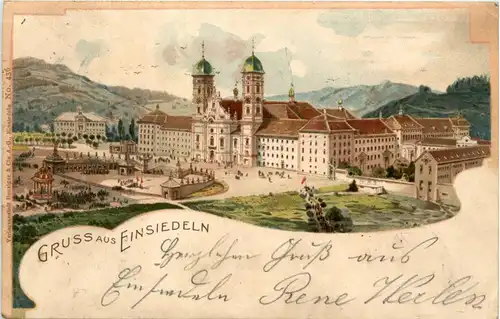 Verlagsanstalt Benziger & Co. A.G. Einsiedeln. No. 435
GRUSS AUS EINSIEDELN
Herzlichen Gruß aus
Einsiedeln Rene